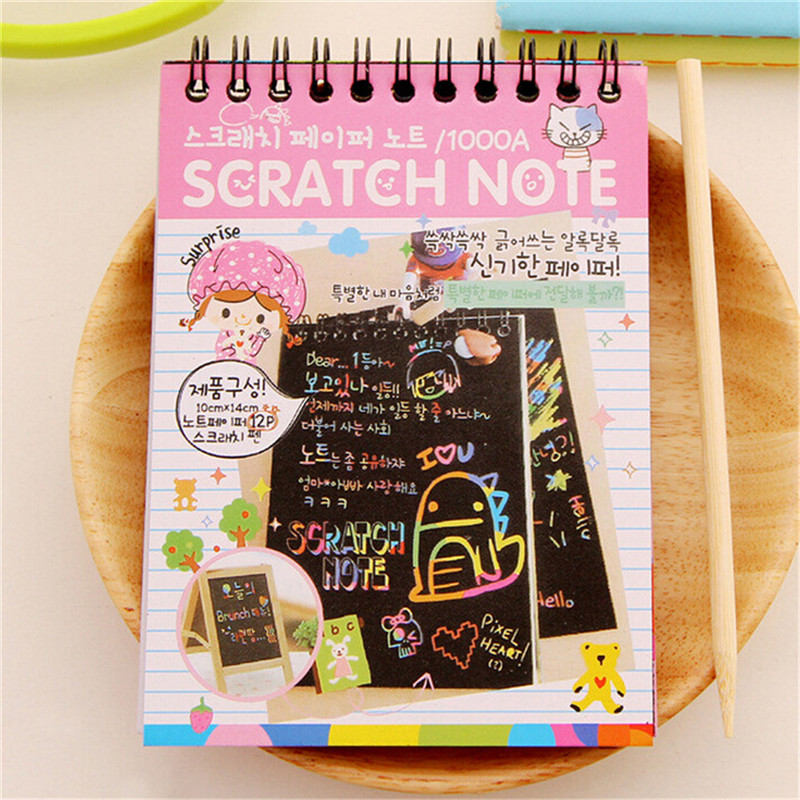 스크래치 페이퍼 노트 /1000A
SCRATCH NOTE
Surprise
쓱싹쓱싹 긁어쓰는 알록달록
신기한 페이퍼!
특별한 내 마음처럼! 특별한 페이퍼에 전달해 볼까?!
제품구성!
10cm×14cm
노트페이퍼 12P
스크래치 펜
Dear... 1등아~
보고있나 일등!!
언제까지 네가 일등 할 줄 아느냐~
더불어 사는 사회
노트는 좀 공유하쟈
엄마*아빠 사랑해요
ㅋㅋㅋ
I ♡ U
SCRATCH
NOTE
PiXEL
HEART!
(?)
안녕?!
Hello
Hello
오늘의
Brunch 메뉴!
abc